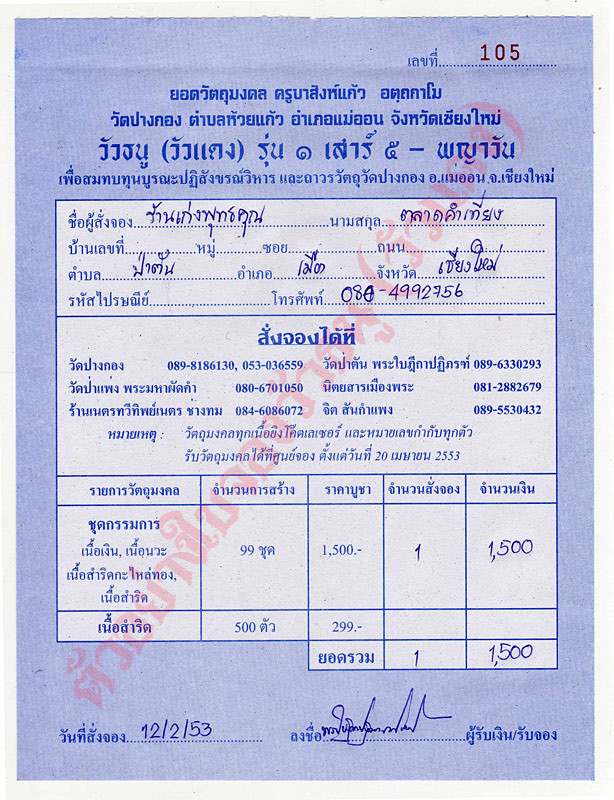 เลขที่ 105
ยอดวัตถุมงคล ครูบาสิงห์แก้ว อตฺถกาโม
วัดปางกอง ตำบลห้วยแก้ว อำเภอแม่ออน จังหวัดเชียงใหม่
วัวธนู (วัวแดง) รุ่น ๑ เสาร์ ๕ - พญาวัน
เพื่อสมทบทุนบูรณะปฏิสังขรณ์วิหาร และถาวรวัตถุวัดปางกอง อ.แม่ออน จ.เชียงใหม่
ชื่อผู้สั่งจอง ร้านเก่งพุทธคุณ นามสกุล ตลาดคำเที่ยง
บ้านเลขที่ หมู่ ซอย ถนน
ตำบล ป่าตัน อำเภอ เมือง จังหวัด เชียงใหม่
รหัสไปรษณีย์ โทรศัพท์ 080-4992756
สั่งจองได้ที่
วัดปางกอง 089-8186130, 053-036559 วัดป่าตัน พระใบฎีกาปฏิภรฑ์ 089-6330293
วัดป่าแพ่ง พระมหาผัดคำ 080-6701050 นิตยสารเมืองพระ 081-2882679
ร้านเนตรทวีทิพย์เนตร ช่างทม 084-6086072 จิต สันกำแพง 089-5530432
หมายเหตุ : วัตถุมงคลทุกเนื้อยิงโค๊ตเลเซอร์ และหมายเลขกำกับทุกตัว
รับวัตถุมงคลได้ที่ศูนย์จอง ตั้งแต่วันที่ 20 เมษายน 2553
รายการวัตถุมงคล จำนวนการสร้าง ราคาบูชา จำนวนสั่งจอง จำนวนเงิน
ชุดกรรมการ
เนื้อเงิน, เนื้อนวะ 99 ชุด 1,500.- 1 1,500
เนื้อสำริดกะไหล่ทอง,
เนื้อสำริด
เนื้อสำริด 500 ตัว 299.-
ยอดรวม 1 1,500
วันที่สั่งจอง 12/2/53 ลงชื่อ ผู้รับเงิน/รับจอง
ตัวอย่างใบจองวัวธนู (วัวแดง)